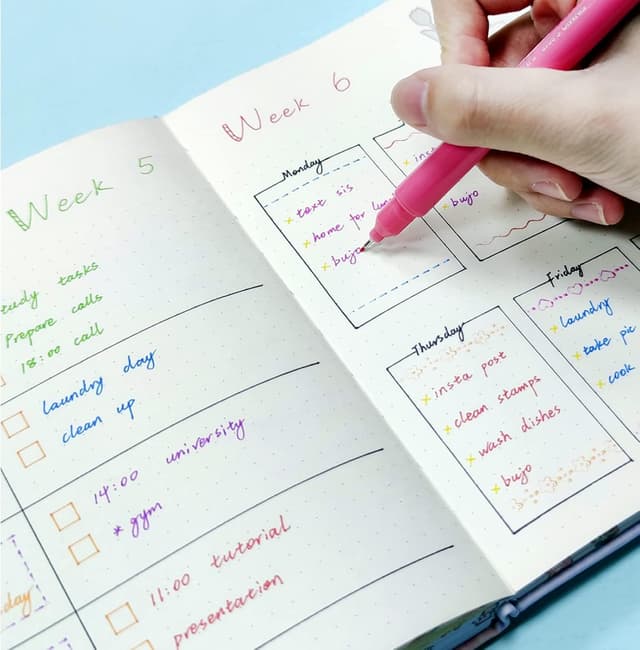 Week 5
Study tasks
Prepare calls
18:00 call
laundry day
clean up
14:00 university
* gym
11:00 tutorial
presentation
day
Week 6
Monday
text sis
home for
bujo
bujo
Thursday
insta post
clean stamps
wash dishes
bujo
Friday
laundry
take pic
cook